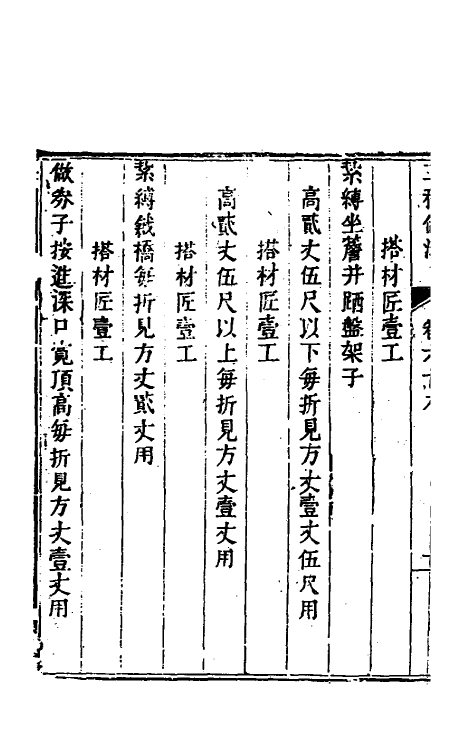 搭材匠壹工
紮縛坐簷井晒盤架子
高貳丈伍尺以下每折見方丈壹丈伍尺用
搭材匠壹工
高貳丈伍尺以上每折見方丈壹丈用
搭材匠壹工
紮縛戧橋每折見方丈貳丈用
搭材匠壹工
做券子按進深口寬頂高每折見方丈壹丈用